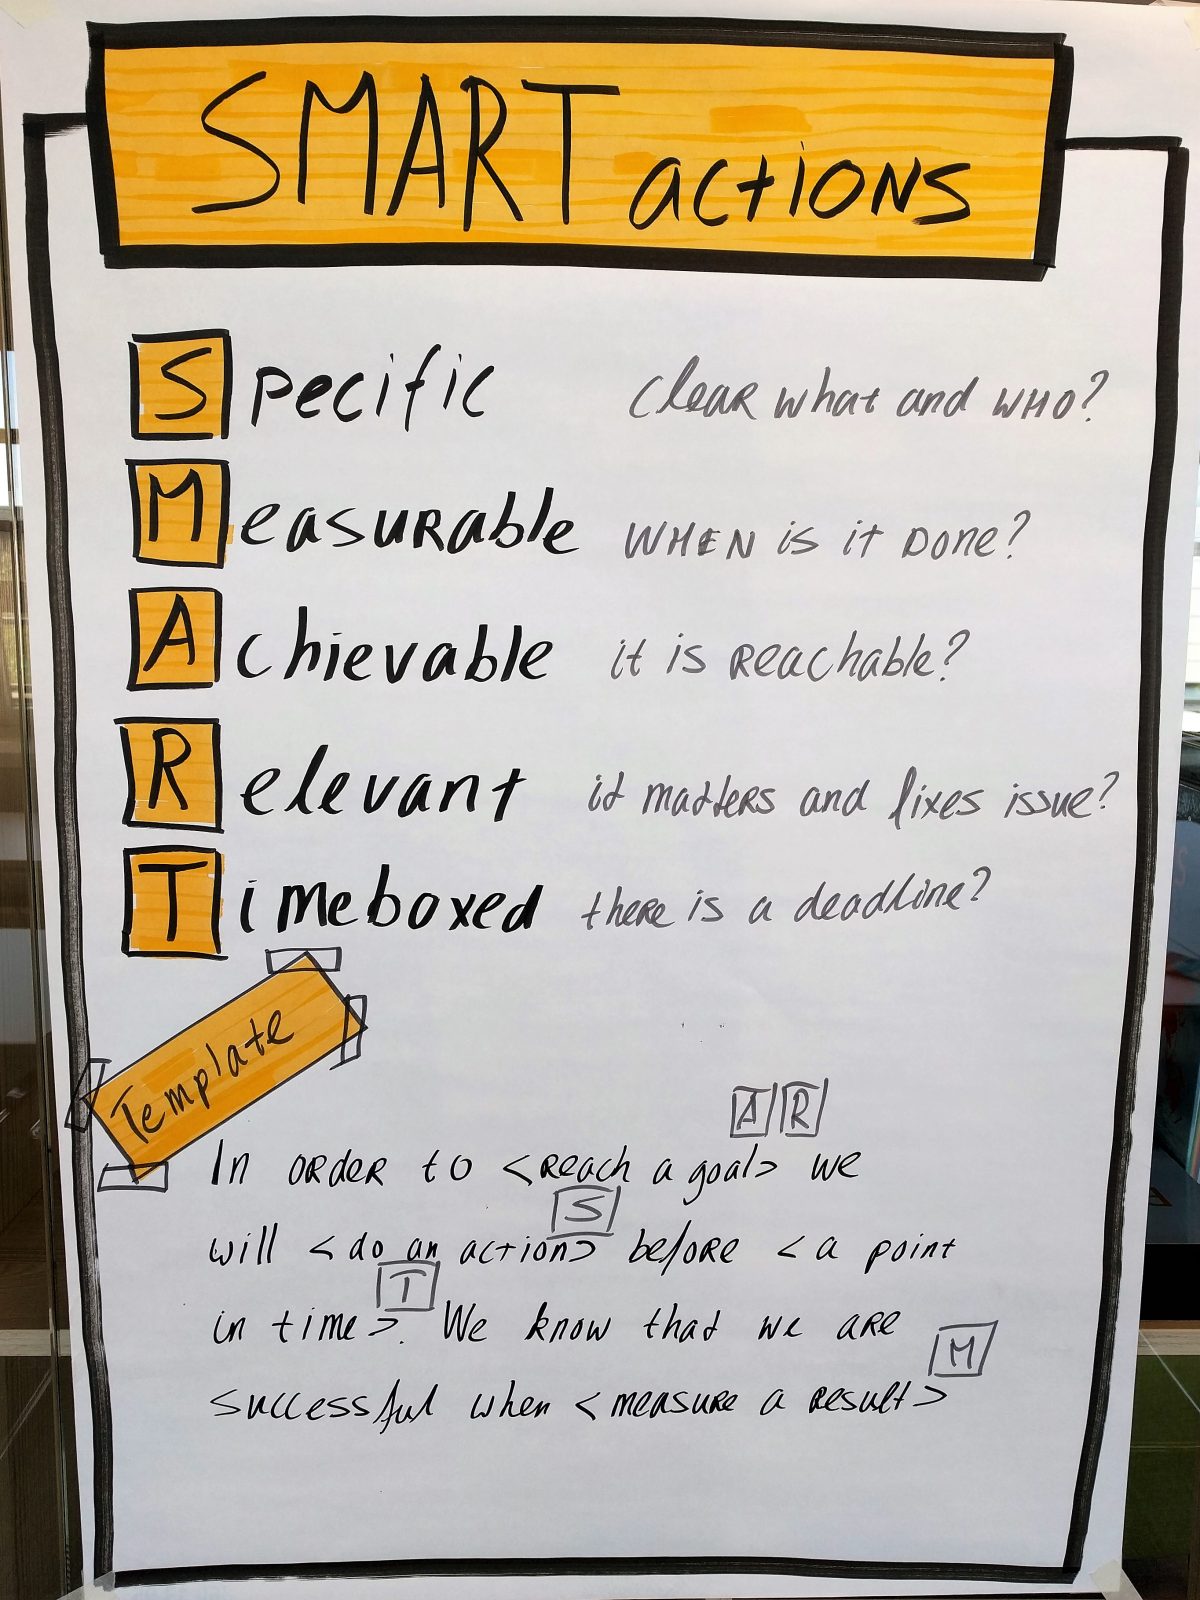 SMART actions
Specific clear what and WHO?
Measurable WHEN is it Done?
Achievable it is reachable?
Relevant it matters and fixes issue?
Timeboxed there is a deadline?
Template
A R
In order to <reach a goal> we
S
will <do an action> before <a point
T
in time>. We know that we are
M
successful when <measure a result>